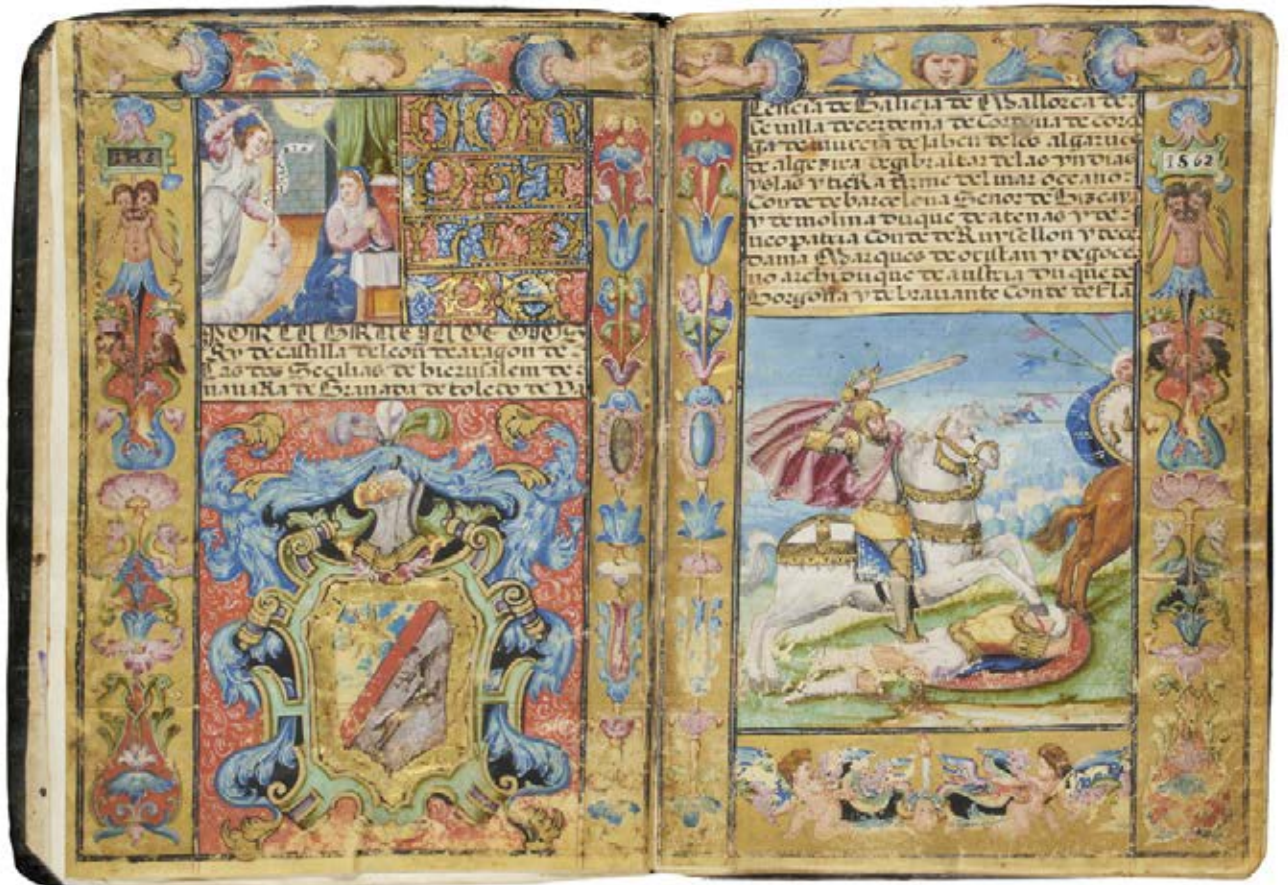 IHS
DON
POR LA GRACIA DE DIOS
Rey de castilla de leon de aragon de
las dos Secilias de hierusalem de
navaRa de Granada de toledo de Va
lencia de Galicia de Mallorca de
Sevilla de cerdenia de Cordova de corce
ga de murcia de Jahen delos algarves
de algezira de gibraltar delas yndias
yslas y tieRa firme del mar oceano
Conde de barcelona Señor de Bizcay
y de molina duque de atenas y de
neopatria Conde de Ruysellon y de cer
dania Marques de oristan y de goce
no archiduque de austria duque de
Borgoña y de bravante Conde de fla
1562